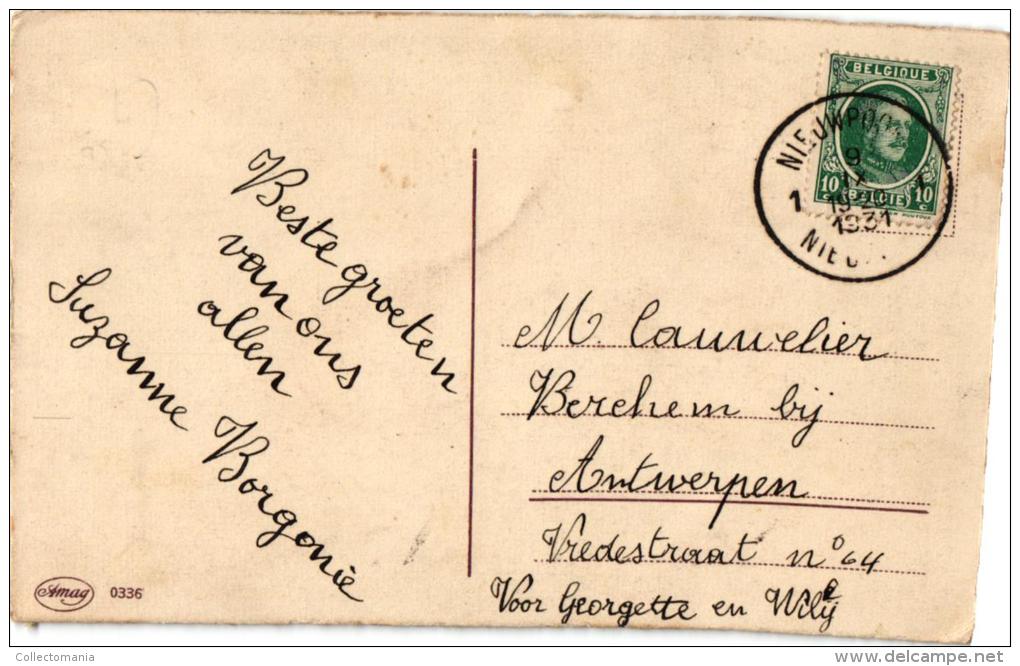 Beste groeten
van ons
allen
Suzanne Borgonie
Amag 0336
BELGIQUE
10 c 10 c
BELGIË
NIEUWPOORT
9
IX
1931
1
M. Cauwelier
Berchem bij
Antwerpen
Vredestraat n° 64
Voor Georgette en
Collectomania
www.delcampe.net